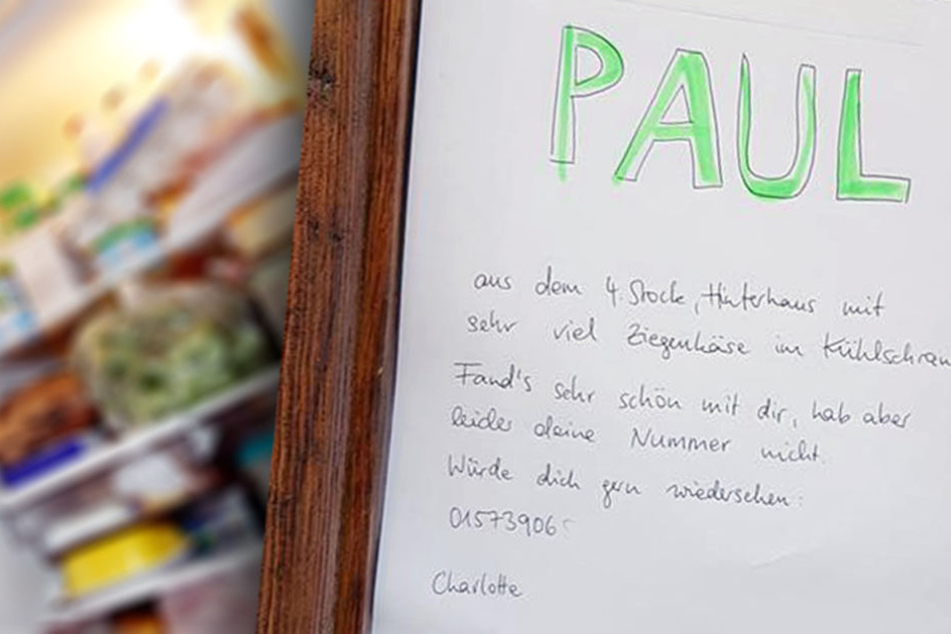 PAUL
aus dem 4. Stock, Hinterhaus mit
sehr viel Ziegenkäse im Kühlschran
Fand's sehr schön mit dir, hab aber
leider deine Nummer nicht.
Würde dich gern wiedersehen:
01573906
Charlotte